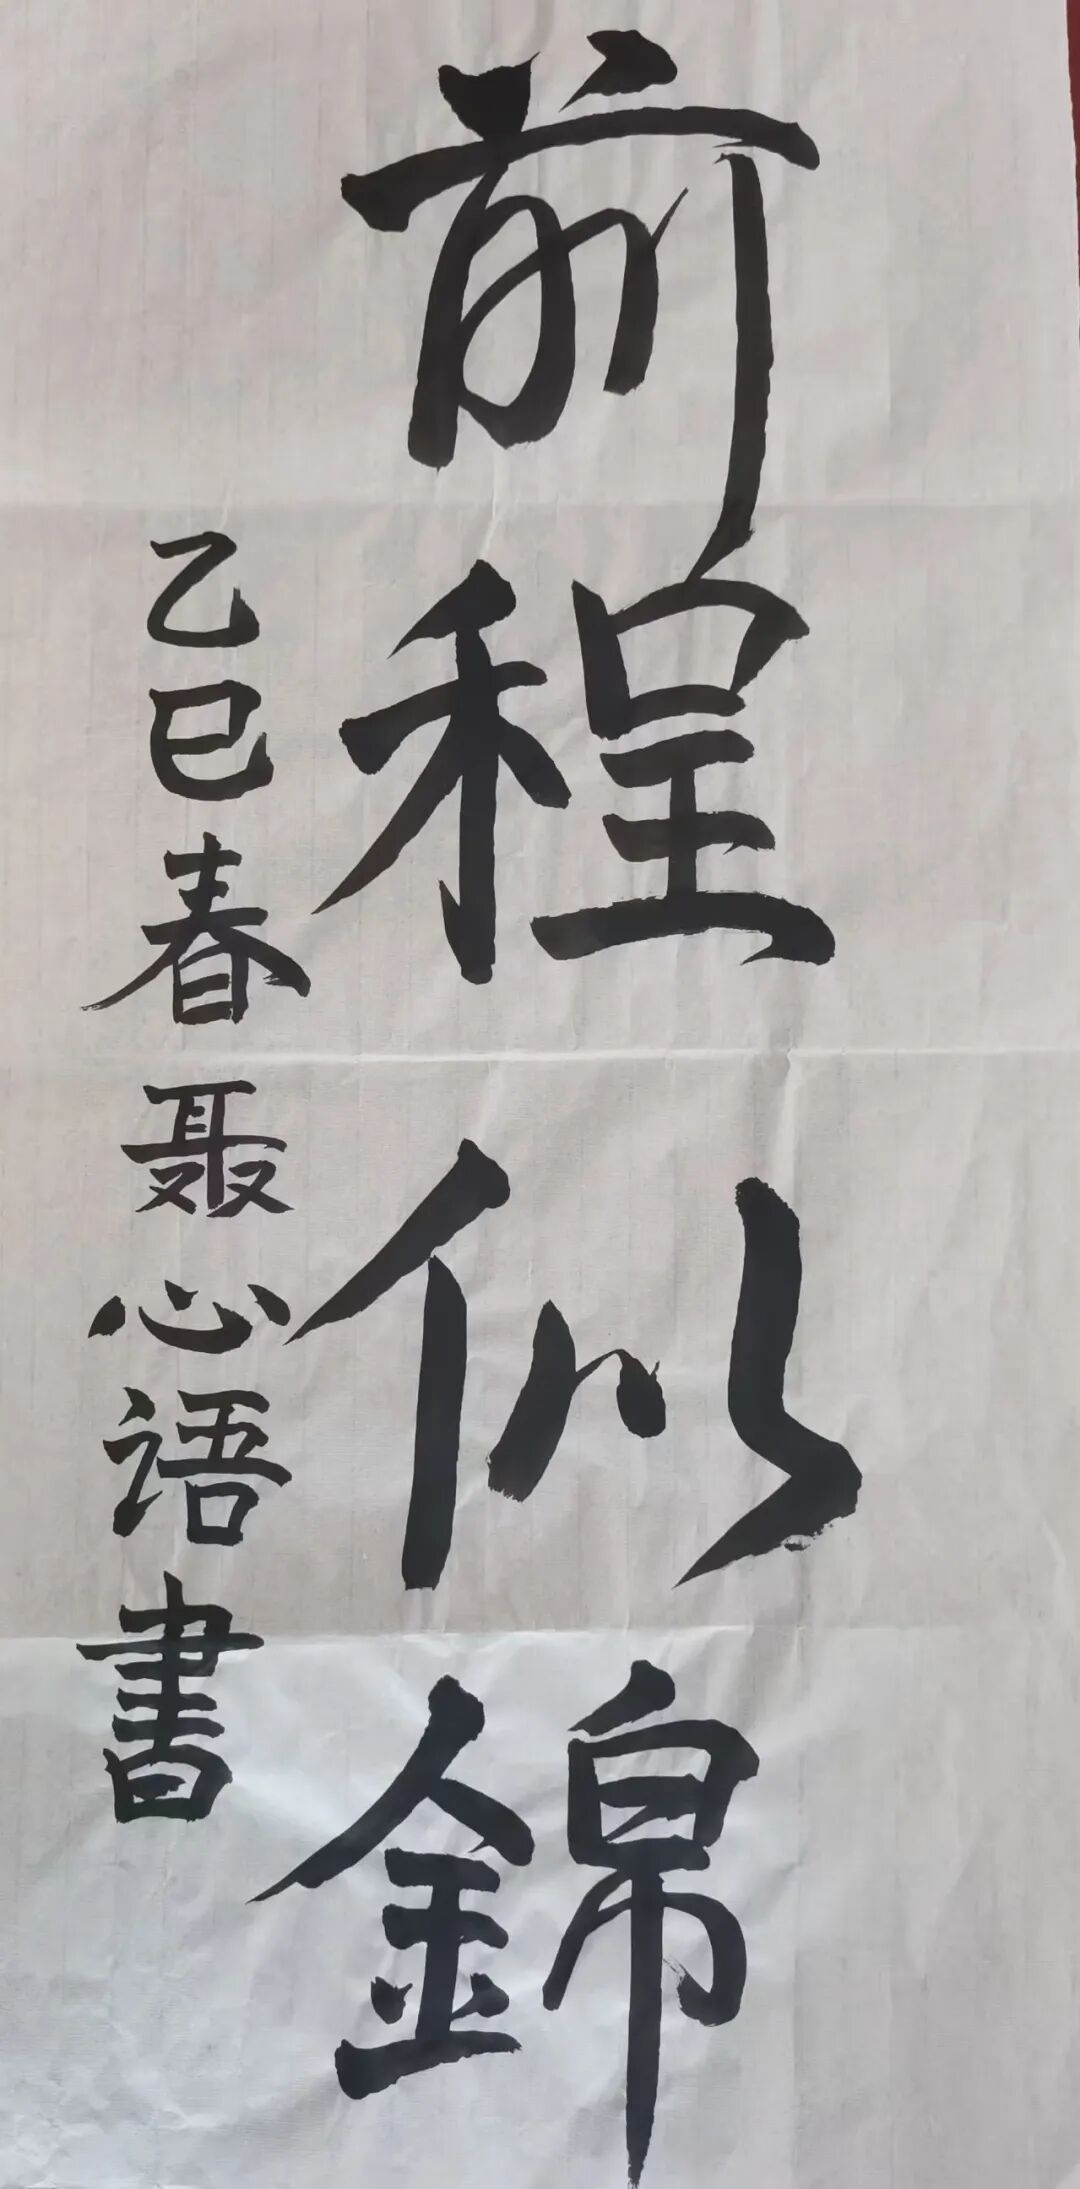 前程似錦
乙巳春聂心语書